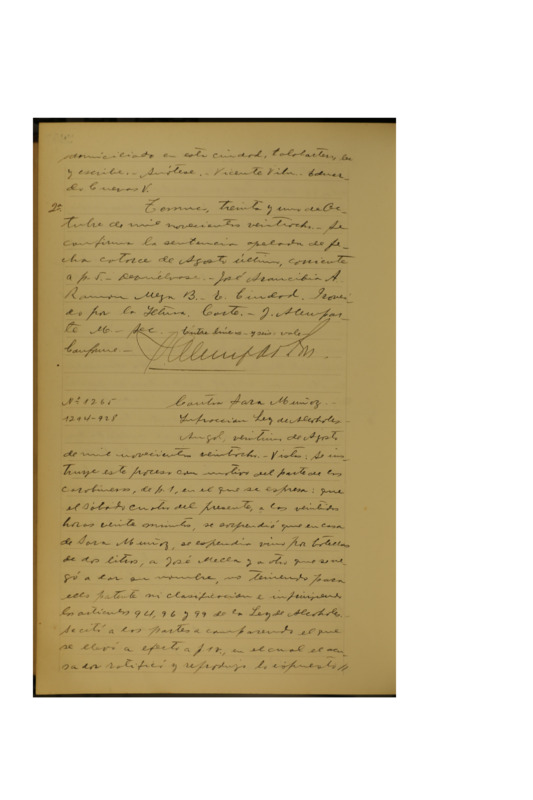 domiciliado en esta ciudad, lee
y escribe.- Anótese.- Vicente Vila. Eduar-
do Cuevas V.
2a. Temuco, treinta y uno de Oc-
tubre de mil novecientos veintiocho.- Se
confirma la sentencia apelada de fe-
cha catorce de Agosto último, corriente
a f. 5.- Devuélvase.- José Arancibia A.
Ramon Meza B.- V. Ciudad. Provei-
do por la Iltma. Corte.- J.
M.- Sec.- Entre líneas- y uno- vale-
Conforme.-
Nº 1265 Contra Sara Muñoz.-
1204-928 Infraccion Ley de Alcoholes-
Angol, veintiuno de Agosto
de mil novecientos veintiocho.- Vistos: Se ins-
truye este proceso con motivo del parte de los
carabineros, de f. 1, en el que se expresa: que
el Sábado cuatro del presente, a las veintidos
horas veinte minutos, se sorprendió que en casa
de Sara Muñoz, se expendia vino por botellas
de dos litros, a José Mella y a otro que se ne-
gó a dar su nombre, no teniendo para
ello patente ni clasificacion e infrinjiendo
los artículos 94, 96 y 99 de la Ley de Alcoholes.-
Se citó a las partes a comparendo el que
se llevó a efecto a f. , en el cual el acu-
sador ratificó y reprodujo lo expuesto //